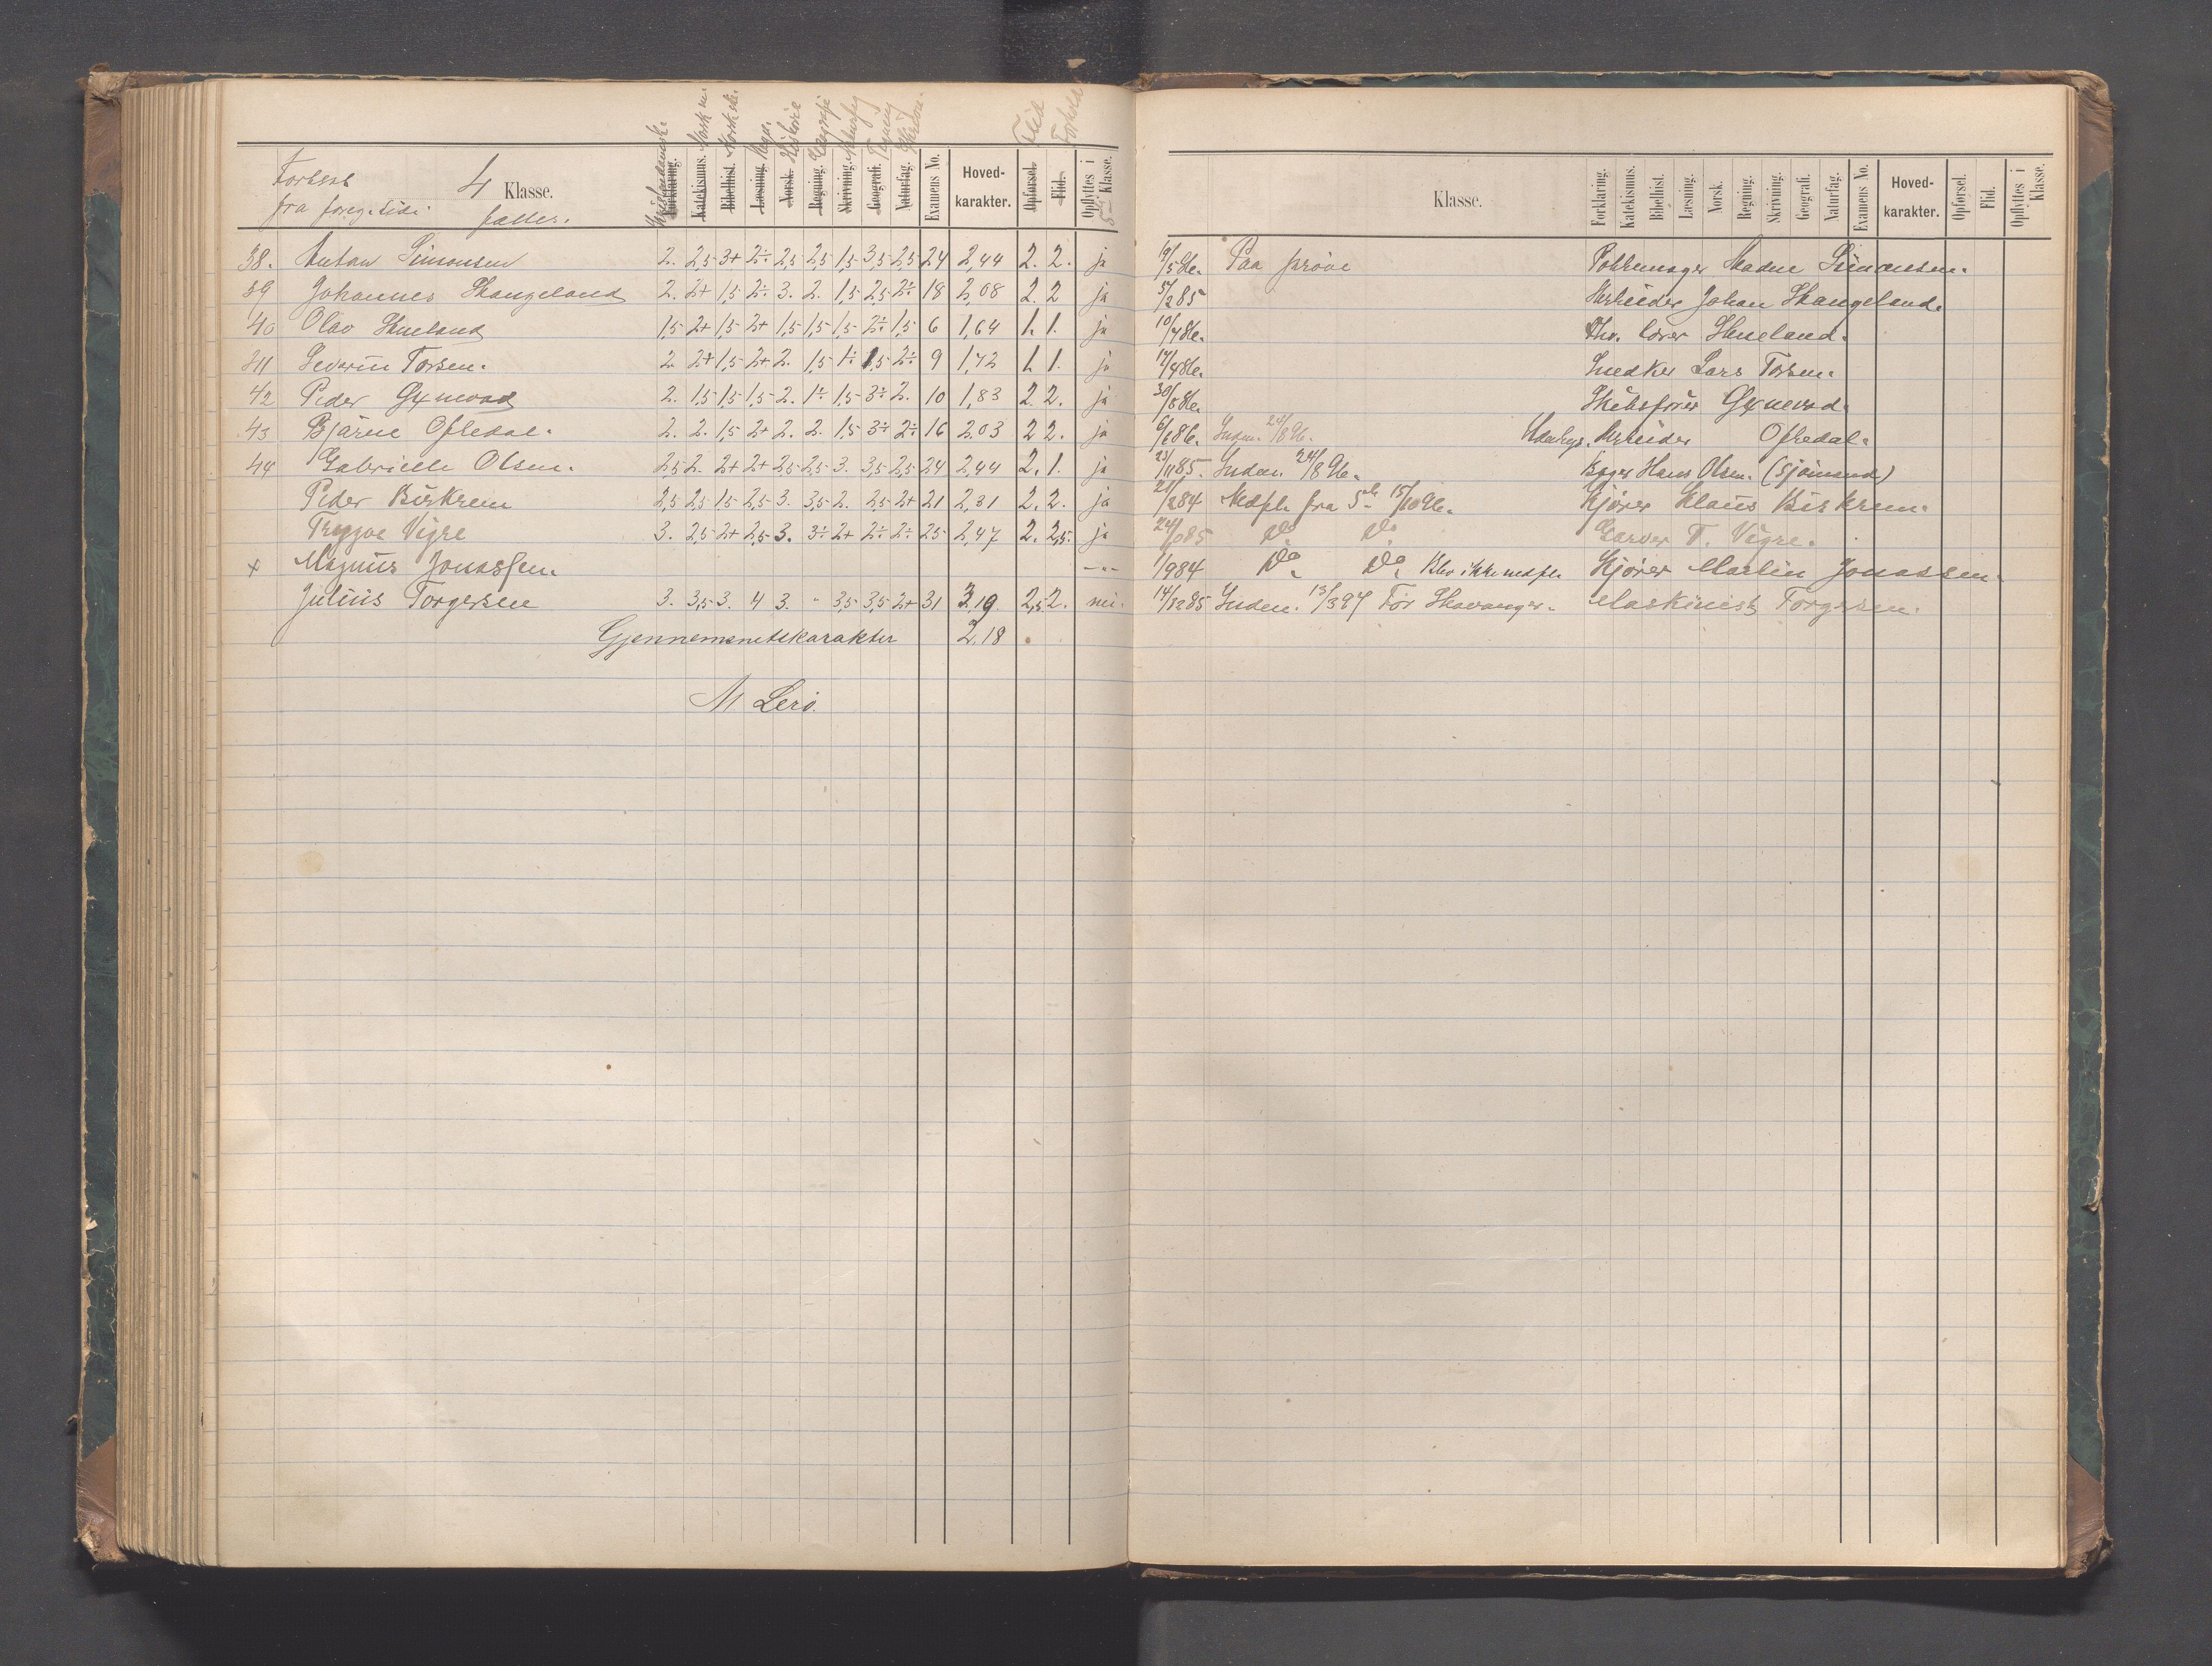 Kristendomsk. Norsk m. Norsk sk. Regn. Historie Geografi Naturfag Tegning Skrivn. Flid Forhold
Fortsat
fra foreg. Side
4 Klasse.
Forklaring. Katekismus. Bibelhist. Læsning. Norsk. Regning. Skrivning. Geografi. Naturfag. Examens No. Hoved-karakter. Opførsel. Flid. Opflyttes i 5 Klasse.
38. Anton Simonsen 2. 2,5 3+ 2÷ 2,5 2,5 1,5 3,5 2,5 24 2,44 2. 2. ja
39 Johannes Skangeland 2. 2+ 1,5 2÷ 3. 2. 1,5 2,5 2÷ 18 2,08 2. 2 ja
40 Olav Skueland 1,5 2+ 1,5 2+ 1,5 1,5 1,5 2÷ 1,5 6 1,64 1. 1. ja
41 Severin Torsen. 2. 2+ 1,5 2+ 2. 1,5 1÷ 1,5 2÷ 9 1,72 1. 1. ja
42 Peder Gxnevad 2. 1,5 1,5 1,5 2. 1÷ 1,5 3÷ 2. 10 1,83 2. 2. ja
43 Bjarne Ofredal. 2. 2. 1,5 2+ 2. 2. 1,5 3÷ 2÷ 16 2.03 2 2. ja
44 Gabrielle Olsen. 2,5 2. 2+ 2+ 2,5 2,5 3. 3,5 2,5 24 2,44 2. 1. ja
Peder Birkrem 2,5 2,5 1,5 2,5 3. 3,5 2. 2,5 2+ 21 2,31 2. 2. ja
Trygve Vigre 3. 2,5 2+ 2,5 3. 3÷ 2+ 2÷ 2÷ 25 2,47 2. 2,5. ja
x Magnus Jonassen. -"-
Julius Torgersen 3. 3,5 3. 4 3. - 3,5 3,5 2+ 31 3,19 2,5 2. nei.
Gjennemsnitskarakter 2.18
M Lerö.
Klasse.
Forklaring. Katekismus. Bibelhist. Læsning. Norsk. Regning. Skrivning. Geografi. Naturfag. Examens No. Hoved-karakter. Opførsel. Flid. Opflyttes i Klasse.
19/5 86. Paa prøve Pottemager Simonsen.
5/2 85 Arbeider Johan Skangeland.
10/4 86. lærer Skueland.
17/4 86. Snedker Lars Torsen.
30/8 86. Skibsfører Gxnevad.
6/6 86. Indm. 24/8 96. Arbeider Ofredal.
23/11 85. Indm. 24/8 96. Bager Hans Olsen. (Sjømand)
21/2 84 Nedfl. fra 5te 15/10 96. Kjører Klaus Birkrem.
24/8 85 Do Do Garver T. Vigre.
1/9 84 Do Do Blev ikke nedfl. Kjører Martin Jonassen.
14/12 85 Indm. 13/3 97 Før Stavanger. Maskinist Torgersen.